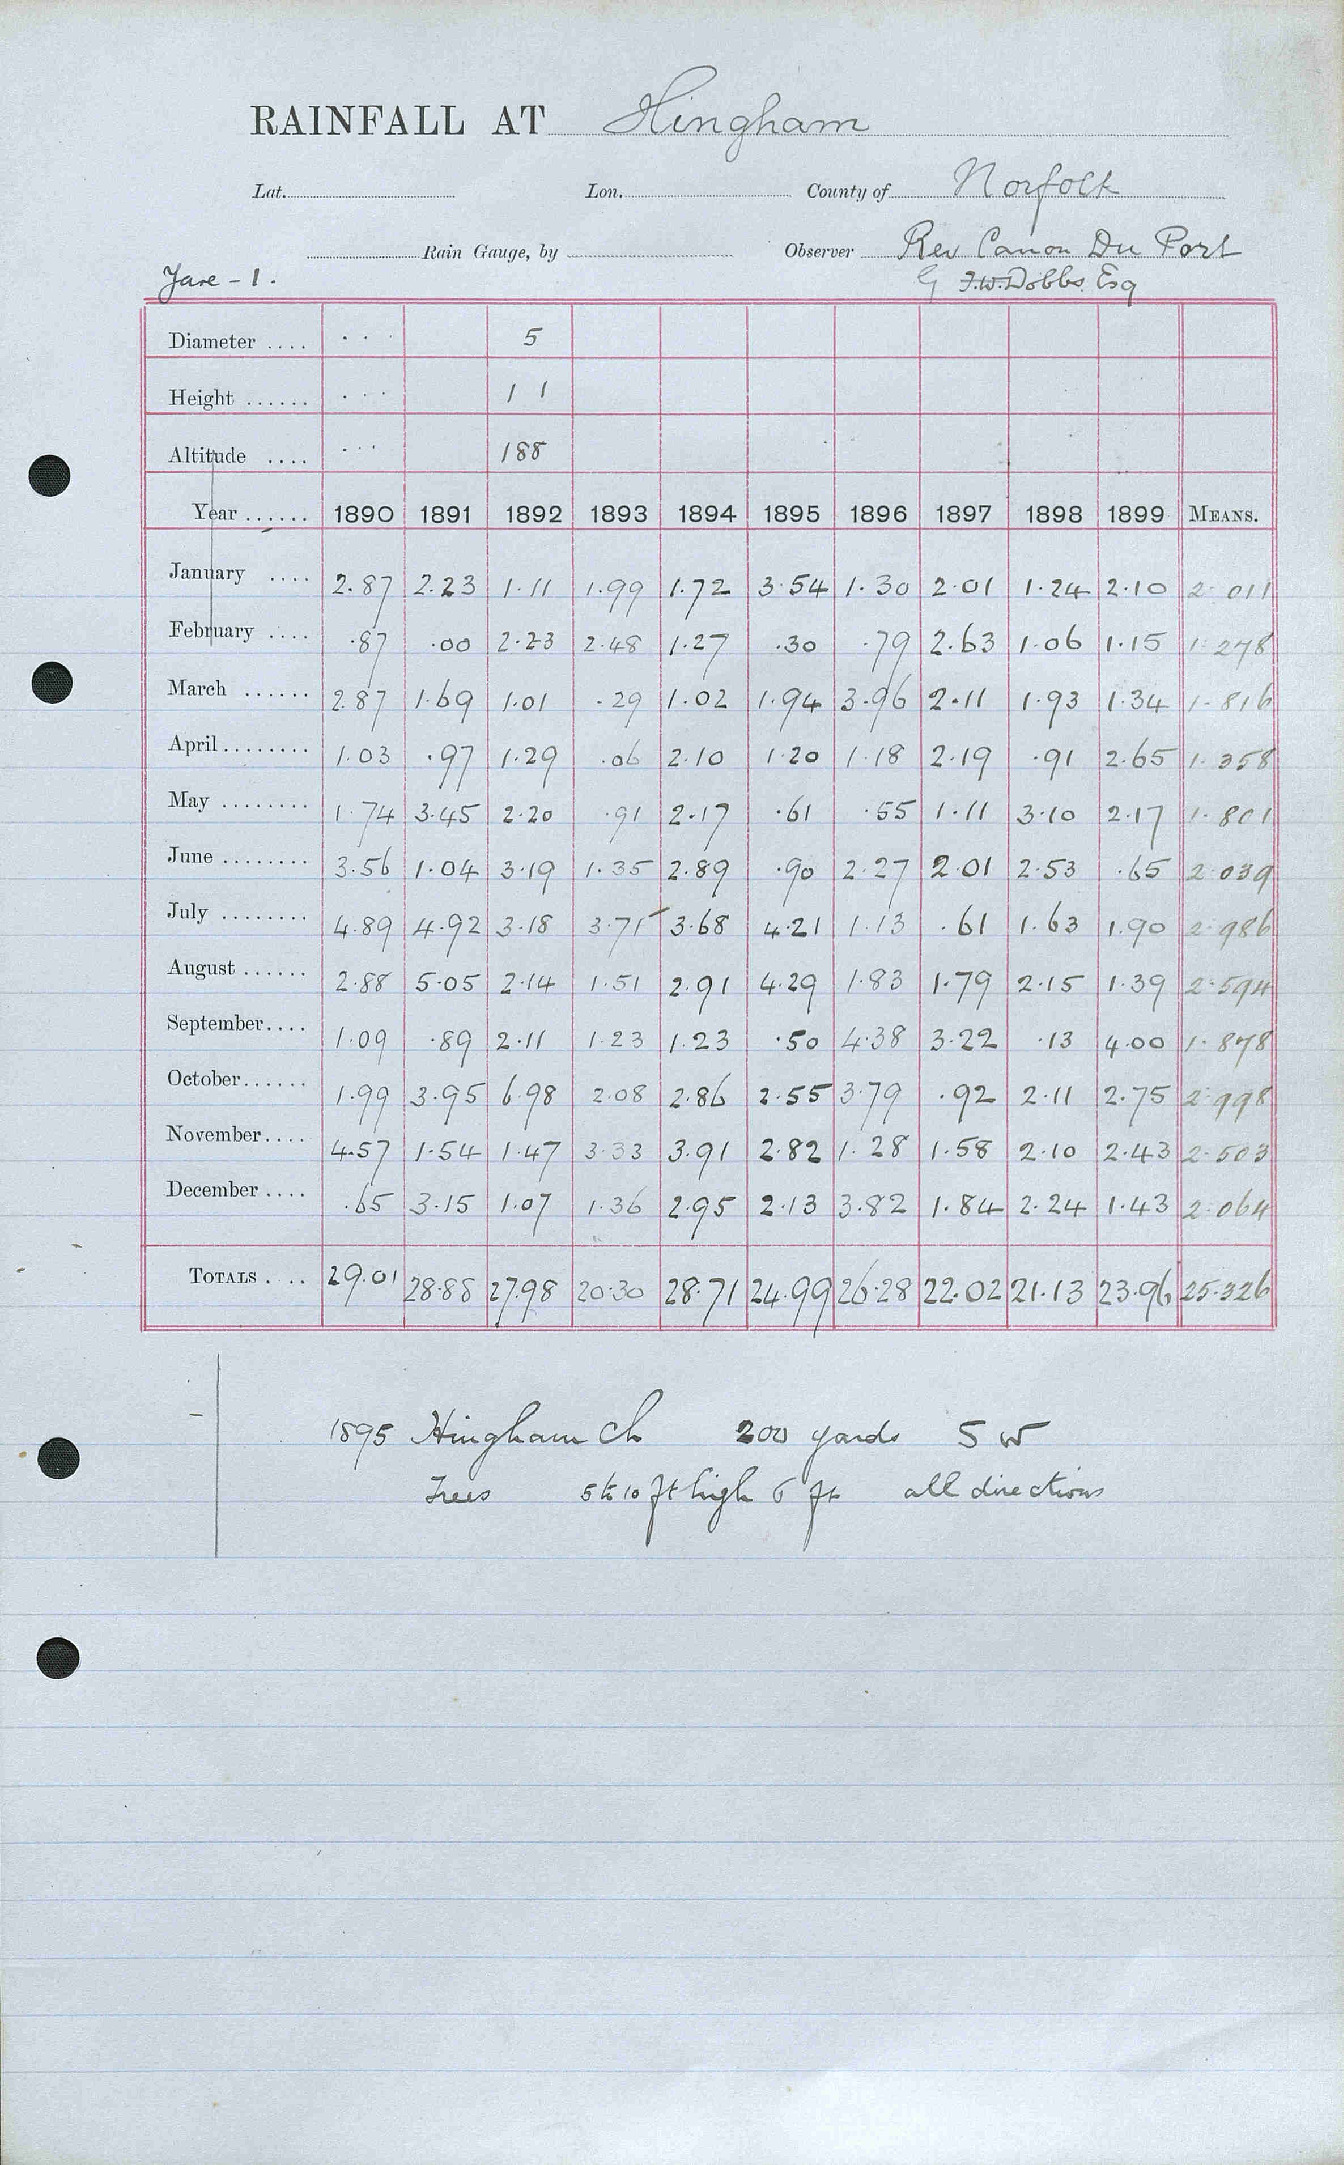 RAINFALL AT Hingham
Lat. Lon. County of Norfolk
Rain Gauge, by Observer Rev Canon Du Port
Yare - 1. G F.W. Dobbs Esq
Diameter .... . . . 5
Height ...... . . . 1 1
Altitude .... . . . 188
Year ...... 1890 1891 1892 1893 1894 1895 1896 1897 1898 1899 MEANS.
January .... 2.87 2.23 1.11 1.99 1.72 3.54 1.30 2.01 1.24 2.10 2.011
February .... .87 .00 2.23 2.48 1.27 .30 .79 2.63 1.06 1.15 1.278
March ...... 2.87 1.69 1.01 .29 1.02 1.94 3.96 2.11 1.93 1.34 1.816
April ........ 1.03 .97 1.29 .06 2.10 1.20 1.18 2.19 .91 2.65 1.358
May ........ 1.74 3.45 2.20 .91 2.17 .61 .55 1.11 3.10 2.17 1.801
June ........ 3.56 1.04 3.19 1.35 2.89 .90 2.27 2.01 2.53 .65 2.039
July ........ 4.89 4.92 3.18 3.71 3.68 4.21 1.13 .61 1.63 1.90 2.986
August ...... 2.88 5.05 2.14 1.51 2.91 4.29 1.83 1.79 2.15 1.39 2.594
September .... 1.09 .89 2.11 1.23 1.23 .50 4.38 3.22 .13 4.00 1.878
October ...... 1.99 3.95 6.98 2.08 2.86 2.55 3.79 .92 2.11 2.75 2.998
November .... 4.57 1.54 1.47 3.33 3.91 2.82 1.28 1.58 2.10 2.43 2.503
December .... .65 3.15 1.07 1.36 2.95 2.13 3.82 1.84 2.24 1.43 2.064
TOTALS .... 29.01 28.88 27.98 20.30 28.71 24.99 26.28 22.02 21.13 23.96 25.326
1895 Hingham Ch 200 yards S W
Trees 5 to 10 ft high 6 ft all directions